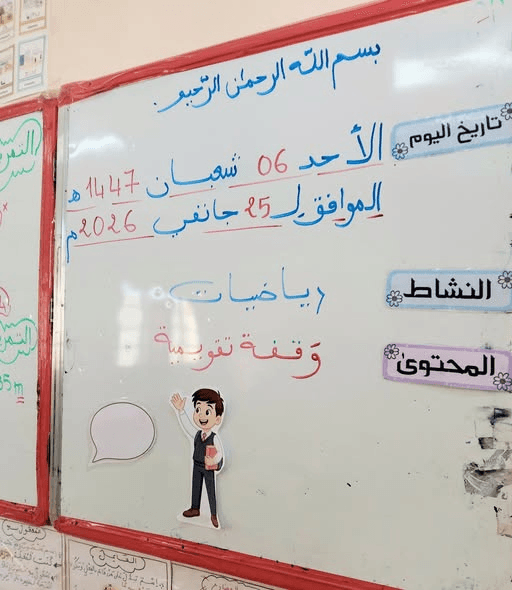 بسم الله الرحمن الرحيم
تاريخ اليوم
الأحد 06 شعبان 1447 هـ
الموافق لـ 25 جانفي 2026 م
النشاط
رياضيات
المحتوى
وقفة تقويمية